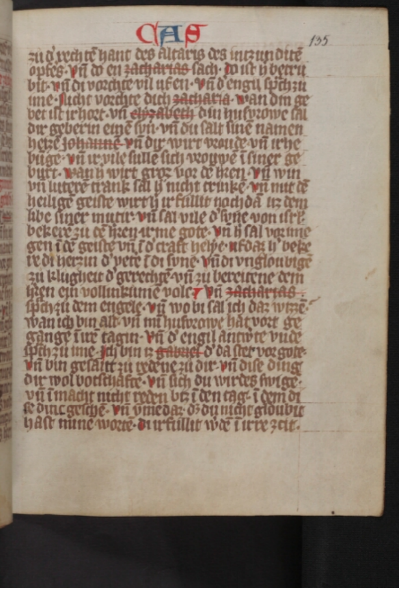 CAS
135
zu d' rechtē hant des altaris des intzunditē
opfes · vn̄ do en zacharias sach · do ist h' betru
bit · vn̄ di vorchte vil uf en · vn̄ d' engil sp̄ch zu
ime · Nicht vorchte dich zacharia · wan din ge
bet ist irhort · vn̄ elyzabeth din husvrowe sal
dir geberin einē svn · vn̄ du salt sinē namen
heizē Johannē · vn̄ dir wirt wonde · vn̄ irhe
buge · vn̄ ir vile sulle sich vrouwē ī siner ge
burt · wan h' wirt groz vor dē hren · vn̄ win
vn̄ lutere trank sal h' nicht trinkē · vn̄ mit dē
heilige geiste wirt h' irfullit noch dā īz dem
libe siner mutir · vn̄ sal vile d' svne von isrl'
bekere zu dē hren irme gote · vn̄ h' sal vorine
gen ī dē geiste vn̄ ī d' craft helye · uf daz h' beke
re di hertzin d' vet'e ī di svne · vn̄ di ungloubige
zu klugheit d' gerechtē · vn̄ zu bereitene dem
hren ein vollinkumē volc · vn̄ zacharias
sp̄ch zu dem engele · vn̄ wo bi sal ich daz wizzē
wan ich bin alt · vn̄ mī husvrowe hat vort ge
gangē ī irē tagin · vn̄ d' engil antw'te vnde
sp̄ch zu ime · Ich bin iz gabriel d' da stet vor gote
vn̄ bin gesant zu redene zu dir · vn̄ dise ding
dir wol botschafte · vn̄ sich du wirdes swigē
vn̄ ī macht nicht reden btz ī den tag · ī dem di
se dinc geschē · vn̄ vme daz dz du nicht gloubit
hast minē wortē · di irfullit w'dē ī irre zeit ·